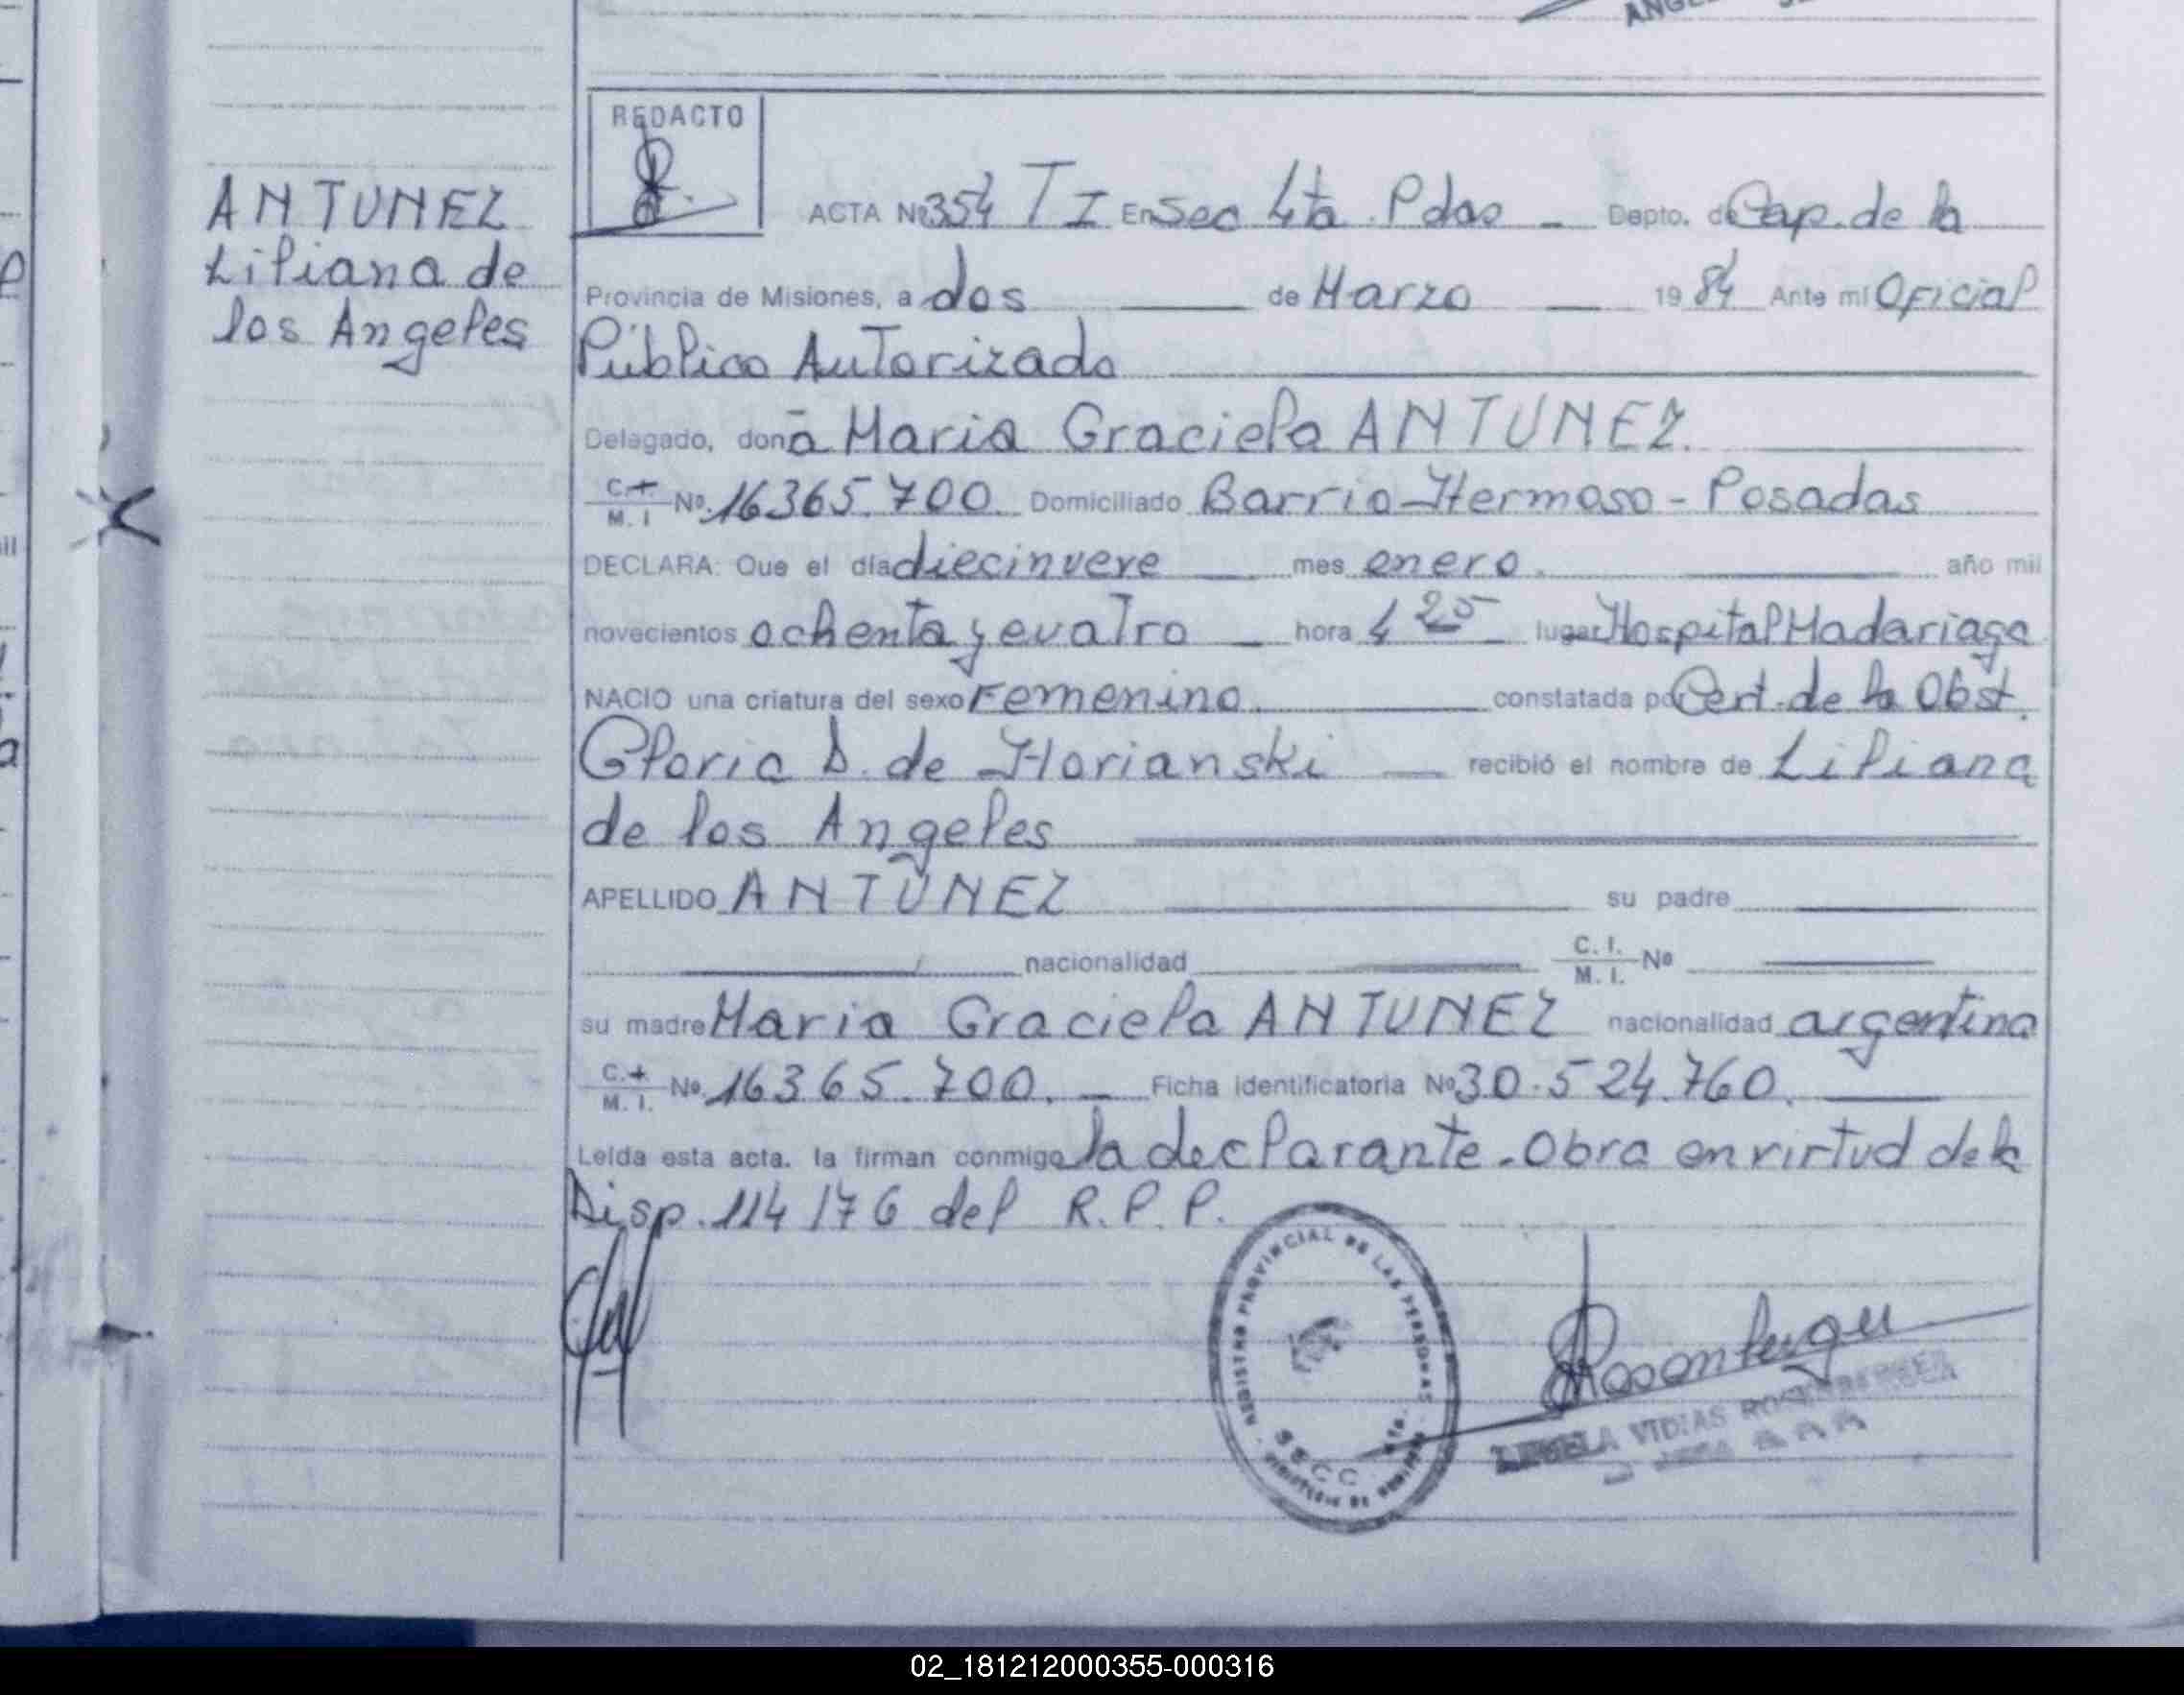 REDACTO
ANTUNEZ
Liliana de
los Angeles
ACTA Nº 354 T I En Sec 4ta. Pdas - Depto. de Cap. de la
Provincia de Misiones, a dos de Marzo 19 84 Ante mí Oficial
Público Autorizado
Delegado, doña Maria Graciela ANTUNEZ.
C.I. M. I Nº 16365.700. Domiciliado Barrio Hermoso - Posadas
DECLARA: Que el día diecinueve mes enero. año mil
novecientos ochenta y cuatro hora 4 25 lugar Hospital Madariaga
NACIO una criatura del sexo Femenino. constatada por Cert. de la Obst.
Gloria D. de Horianski recibió el nombre de Liliana
de los Angeles
APELLIDO ANTUNEZ su padre
nacionalidad C. I. M. I. Nº
su madre Maria Graciela ANTUNEZ nacionalidad argentina
C.I. M. I. Nº 16365.700. Ficha identificatoria Nº 30.524.760.
Leída esta acta. la firman conmigo la declarante. Obra en virtud de la
Disp. 114/76 del R.P.P.
REGISTRO PROVINCIAL DE LAS PERSONAS
SECC 4ta.
VIDIAS ROSENBERGER
02_181212000355-000316